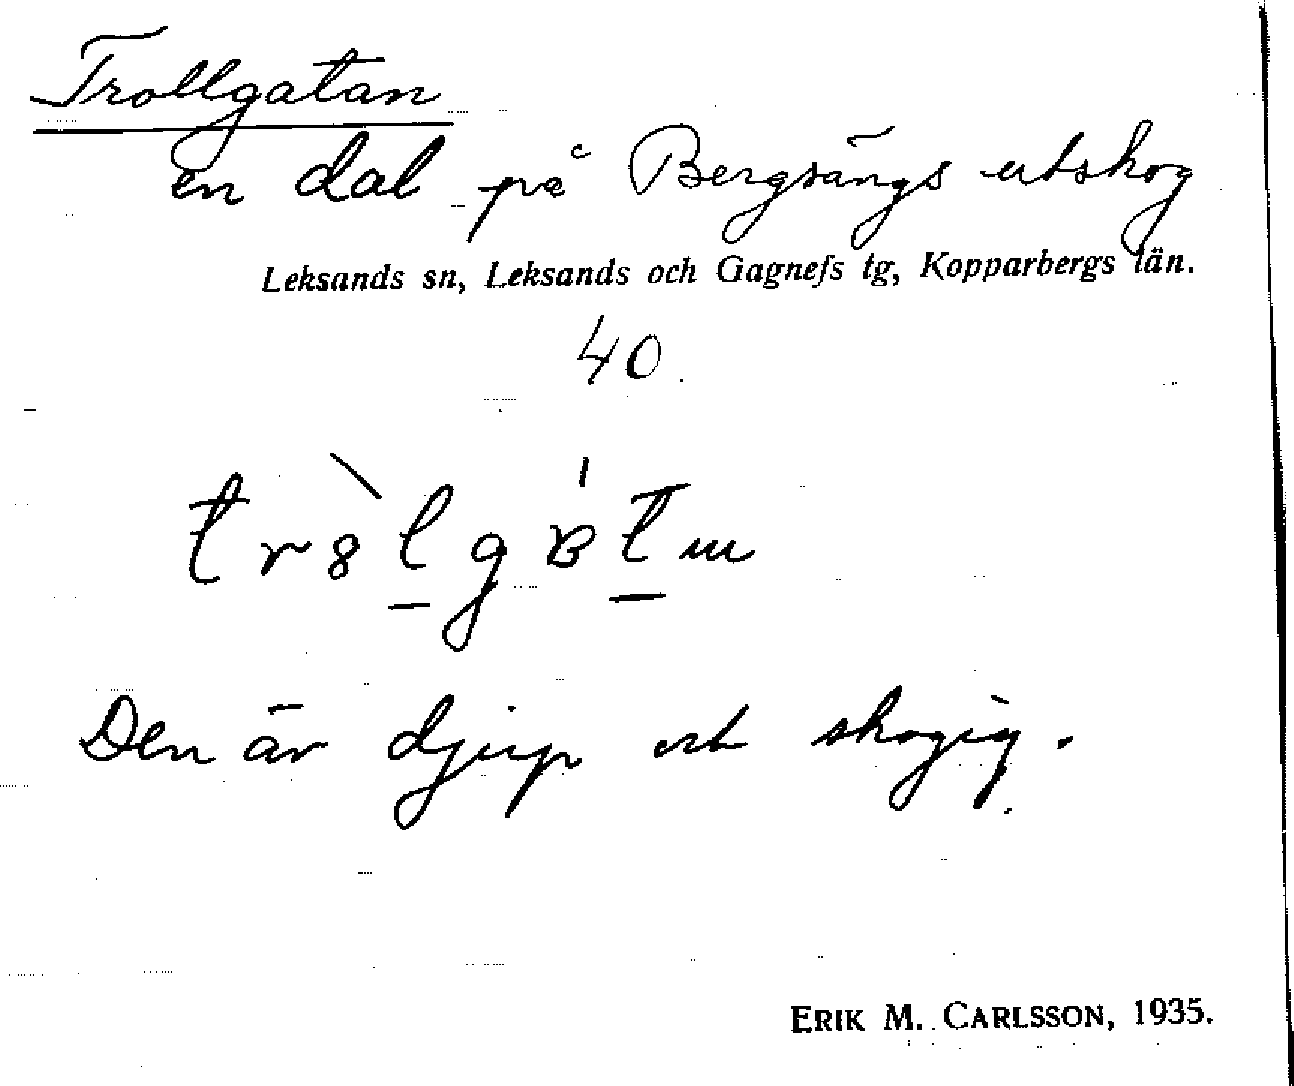 Trollgatan
en dal på Bergsängs utskog
Leksands sn, Leksands och Gagnefs tg, Kopparbergs län.
40.
Den är djup och skogig.
ERIK M. CARLSSON, 1935.